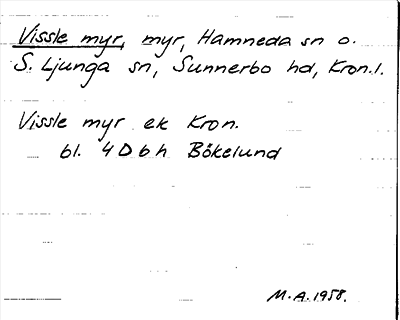 Vissle myr, myr, Hamneda sn o.
S. Ljunga sn, Sunnerbo hd, Kron.l.
Vissle myr ek Kron.
bl. 4D6h Bökelund
M.A. 1958.